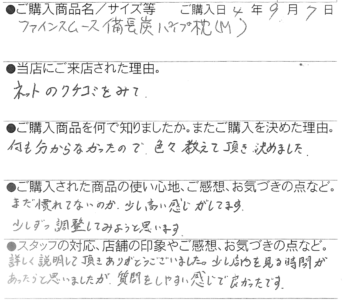 ●ご購入商品名／サイズ等　ご購入日 4 年 9 月 7 日
ファインスムース 備長炭パイプ枕(M)
●当店にご来店された理由。
ネットのクチコミをみて.
●ご購入商品を何で知りましたか。またご購入を決めた理由。
何も分からなかったので 色々教えて頂き決めました.
●ご購入された商品の使い心地、ご感想、お気づきの点など。
まだ慣れてないのか 少し高い感じがしてます.
少しずつ調整してみようと思います.
●スタッフの対応、店舗の印象やご感想、お気づきの点など。
詳しく説明して頂きありがとうございました。少し店内を見る時間が
あったらと思いましたが、質問をしやすい感じで良かったです.